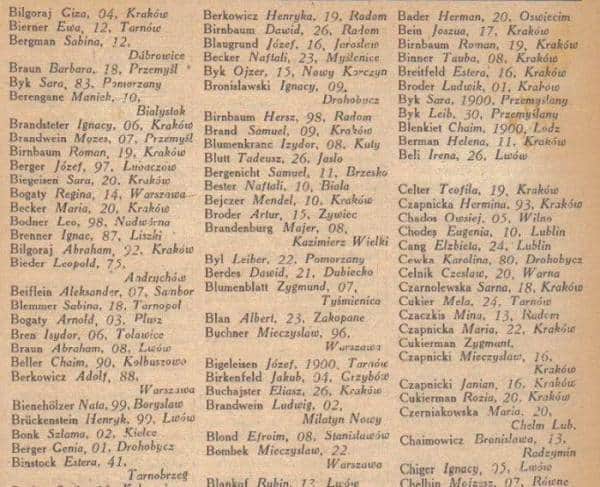 Bilgoraj Giza, 04, Kraków
Bierner Ewa, 12, Tarnów
Bergman Sabina, 12,
Dąbrowice
Braun Barbara, 18, Przemyśl
Byk Sara, 83, Pomorzany
Berengane Maniek, 10,
Białystok
Brandsteter Ignacy, 06, Kraków
Brandwein Mozes, 07, Przemyśl
Birnbaum Roman, 19, Kraków
Berger Józef, 97, Lubaczów
Biegeisen Sara, 20, Kraków
Bogaty Regina, 14, Warszawa
Becker Maria, 20, Kraków
Bodner Leo, 98, Nadwórna
Brenner Ignac, 87, Liszki
Bilgoraj Abraham, 92, Kraków
Bieder Leopold, 75,
Andrychów
Beiflein Aleksander, 07, Sambor
Blemmer Sabina, 18, Tarnopol
Bogaty Arnold, 03, Plusz
Bren Isydor, 06, Tolawice
Braun Abraham, 08, Lwów
Beller Chaim, 90, Kolbuszowa
Berkowicz Adolf, 88,
Warszawa
Bienehölzer Nata, 99, Borysław
Brückenstein Henryk, 99, Lwów
Bonk Szlama, 02, Kielce
Berger Genia, 01, Drohobycz
Binstock Estera, 41,
Tarnobrzeg
Berkowicz Henryka, 19, Radom
Birnbaum Dawid, 26, Radom
Blaugrund Józef, 16, Jarosław
Becker Naftali, 23, Myślenice
Byk Ojzer, 15, Nowy Korczyn
Bronisławski Ignacy, 09,
Drohobycz
Birnbaum Hersz, 98, Radom
Brand Samuel, 09, Kraków
Blumenkranc Izydor, 08, Kuty
Blutt Tadeusz, 26, Jasło
Bergenicht Samuel, 11, Brzesko
Bester Naftali, 10, Biała
Bejczer Mendel, 10, Kraków
Broder Artur, 15, Żywiec
Brandenburg Majer, 08,
Kazimierz Wielki
Byl Leiber, 22, Pomorzany
Berdes Dawid, 21, Dubiecko
Blumenblatt Zygmunt, 07,
Tyśmienica
Blan Albert, 23, Zakopane
Buchner Mieczysław, 96,
Warszawa
Bigeleisen Józef, 1900, Tarnów
Birkenfeld Jakub, 04, Grzybów
Buchajster Eliasz, 26, Kraków
Brandwein Ludwig, 02,
Milatyn Nowy
Blond Efroim, 08, Stanisławów
Bombek Mieczysław, 22
Warszawa
Blankof Rubin, 13, Lwów
Bader Herman, 20, Oswięcim
Bein Joszua, 17, Kraków
Birnbaum Roman, 19, Kraków
Binner Tauba, 08, Kraków
Breitfeld Estera, 16, Kraków
Broder Ludwik, 01, Kraków
Byk Sara, 1900, Przemyślany
Byk Leib, 30, Przemyślany
Blenkiet Chaim, 1900, Łodz
Berman Helena, 11, Kraków
Beli Irena, 26, Lwów
Celter Teofila, 19, Kraków
Czapnicka Hermina, 93, Kraków
Chados Owsiej, 05, Wilno
Chodes Eugenia, 10, Lublin
Cang Elżbieta, 24, Lublin
Cewka Karolina, 80, Drohobycz
Celnik Czesław, 20, Warna
Czarnolewska Sarna, 18, Kraków
Cukier Mela, 24, Tarnów
Czaczkis Mina, 13, Radom
Czapnicka Maria, 22, Kraków
Cukierman Zygmunt,
Czapnicki Mieczysław, 16,
Kraków
Czapnicki Janian, 16, Kraków
Cukierman Rozia, 20, Kraków
Czerniakowska Maria, 20,
Chełm Lub.
Chaimowicz Bronisława, 13,
Radzymin
Chiger Ignacy, 05, Lwów
Chelbin Mojżesz, 07, Równe